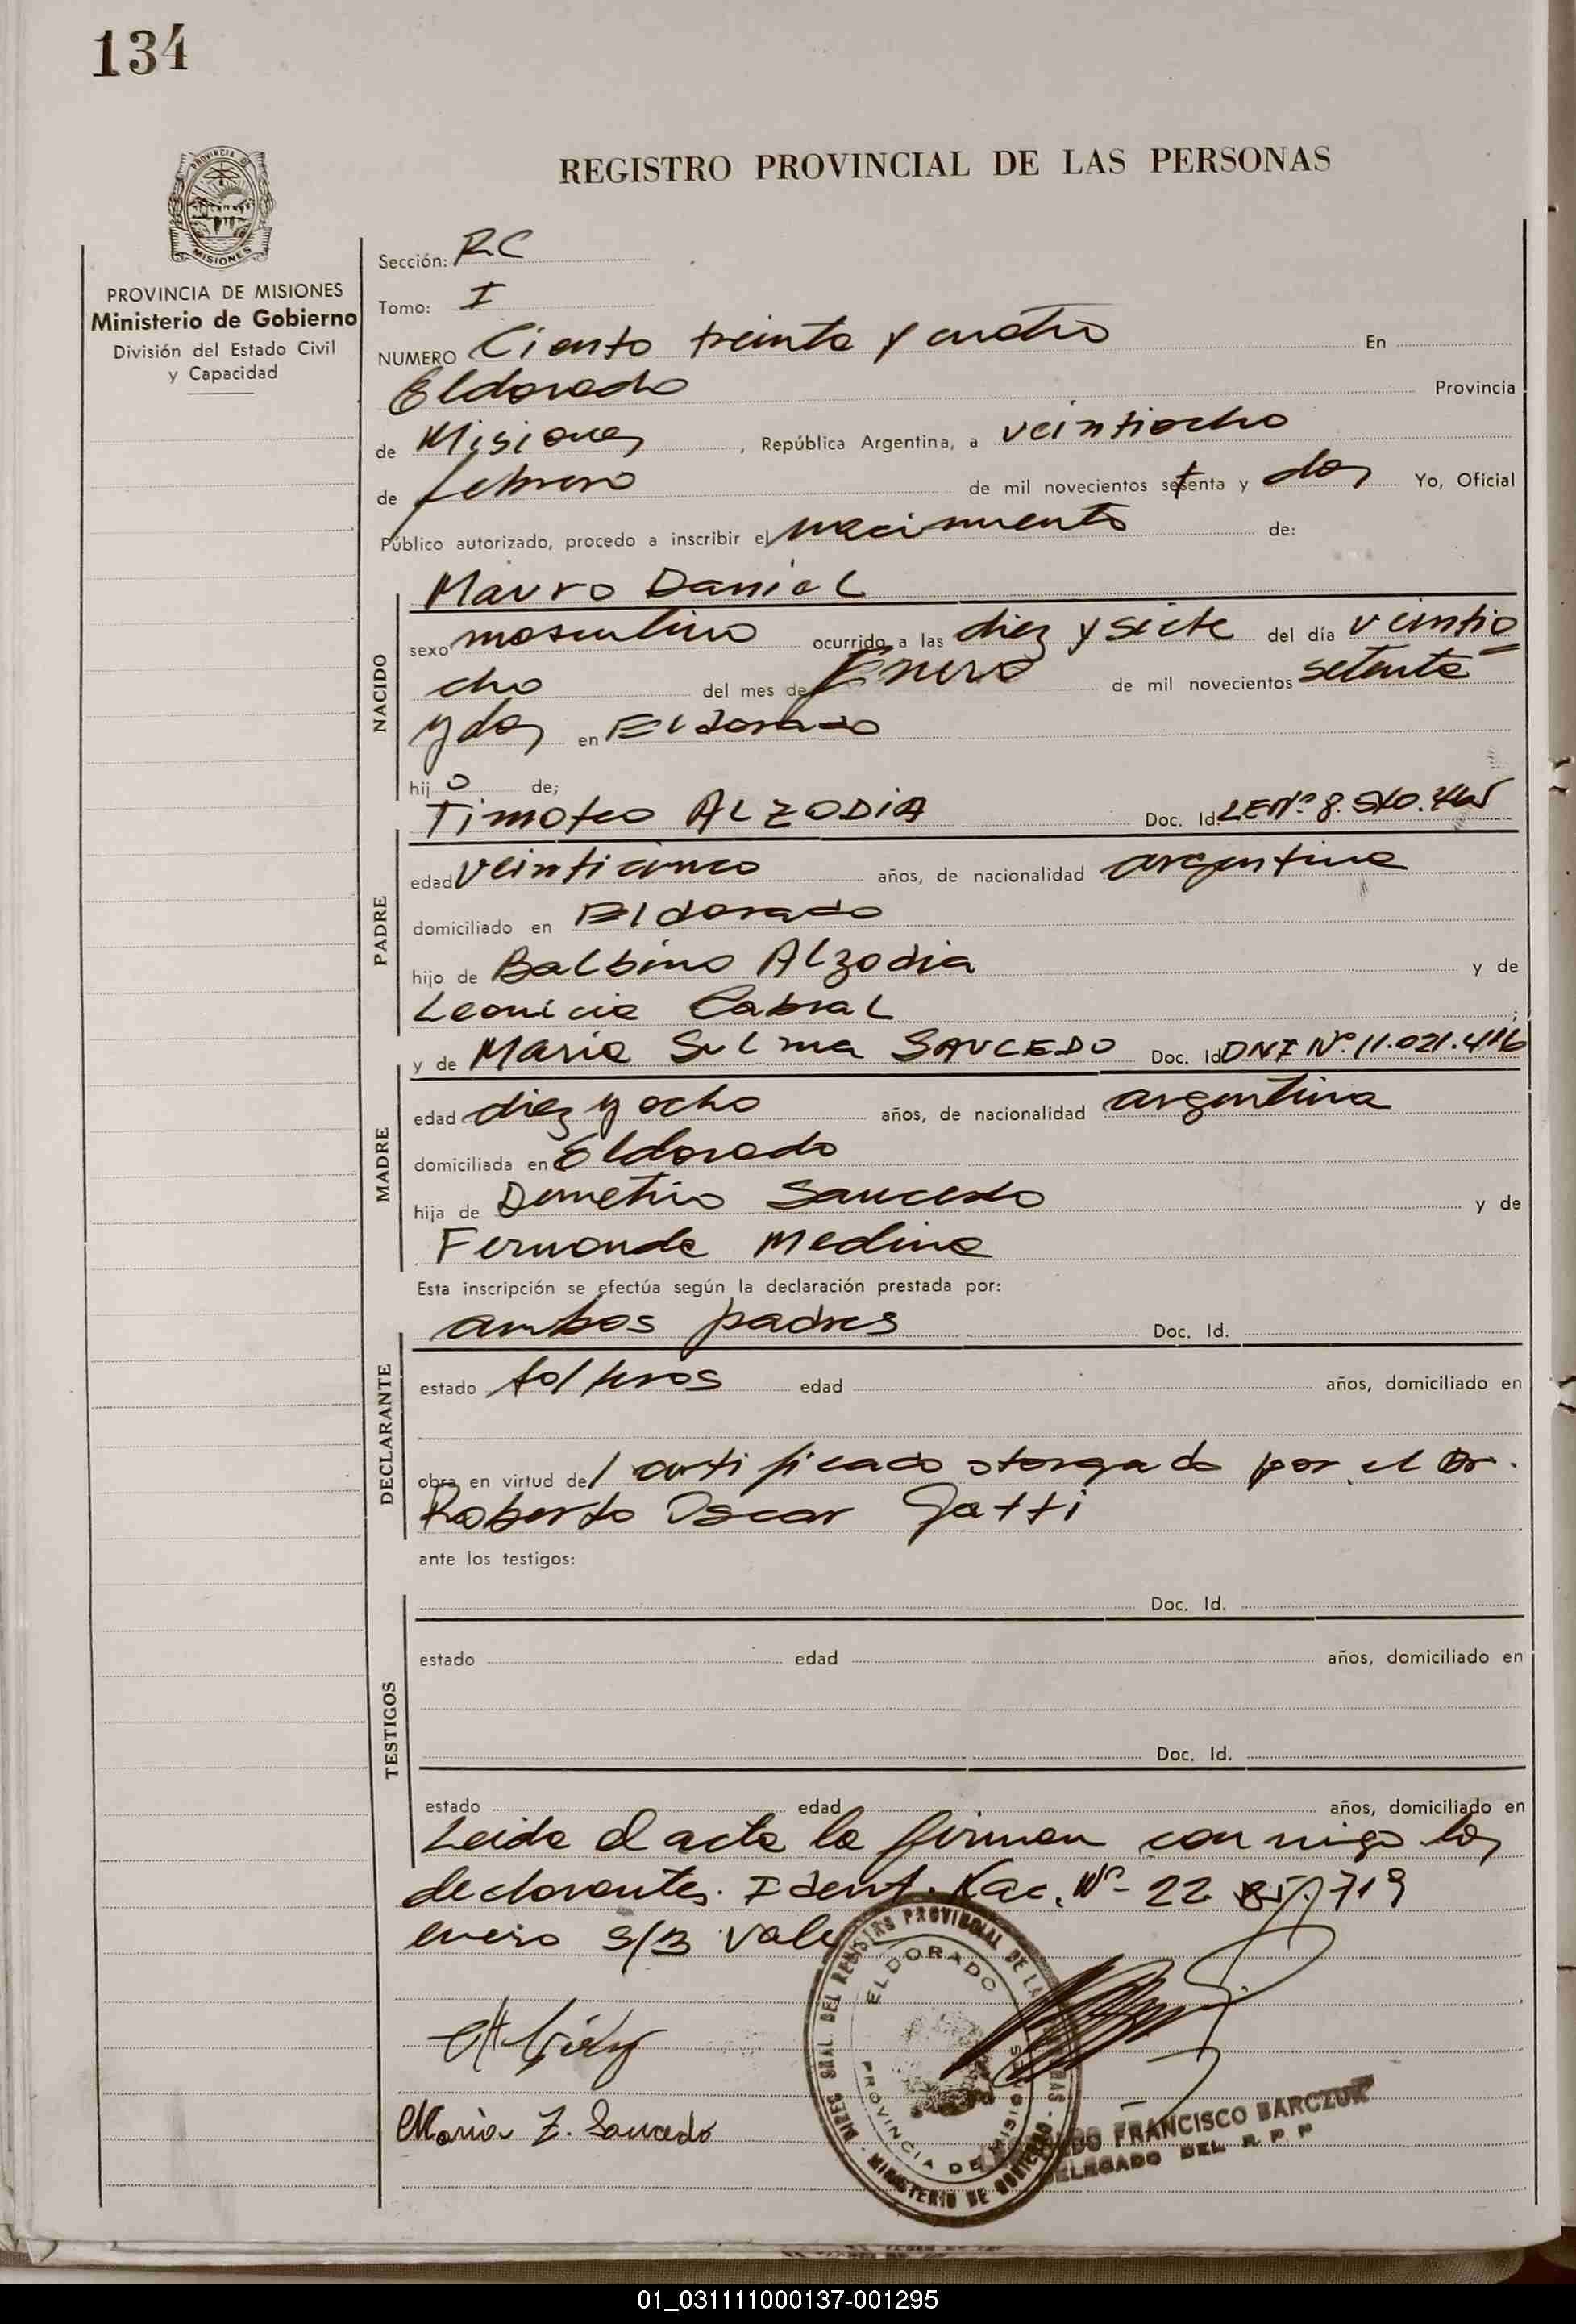 134
PROVINCIA DE
MISIONES
PROVINCIA DE MISIONES
Ministerio de Gobierno
División del Estado Civil
y Capacidad
REGISTRO PROVINCIAL DE LAS PERSONAS
Sección: RC
Tomo: I
NUMERO Ciento treinta y cuatro En
Eldorado Provincia
de Misiones, República Argentina, a veintiocho
de febrero de mil novecientos setenta y dos Yo, Oficial
Público autorizado, procedo a inscribir el nacimiento de:
NACIDO
Mauro Daniel
sexo masculino ocurrido a las diez y siete del día veintio
cho del mes de Enero de mil novecientos setenta
y dos en Eldorado
hijo de;
PADRE
Timoteo ALZODIA Doc. Id. LE Nº 8.
edad veinticinco años, de nacionalidad argentina
domiciliado en Eldorado
hijo de Balbino Alzodia y de
Leonicia Cabral;
MADRE
y de Maria Sulma SAUCEDO Doc. Id. DNI Nº 11.021.416
edad diez y ocho años, de nacionalidad argentina
domiciliada en Eldorado
hija de Demetrio Saucedo y de
Fernanda Medina
Esta inscripción se efectúa según la declaración prestada por:
DECLARANTE
ambos padres Doc. Id.
estado solteros edad años, domiciliado en
obra en virtud del certificado otorgado por el Dr.
Roberto Oscar Gatti
ante los testigos:
TESTIGOS
Doc. Id.
estado edad años, domiciliado en
Doc. Id.
estado edad años, domiciliado en
Leida el acta la firman conmigo los
declarantes. Ident. Nac. Nº 22 719
enero s/B vale
DIREC. GRAL. DEL REGISTRO PROVINCIAL DE LAS PERSONAS - MINISTERIO DE GOBIERNO -
ELDORADO
PROVINCIA DE MISIONES
Maria Z. Saucedo
FRANCISCO BARCZUK
DELEGADO DEL R. P. P
01_031111000137-001295